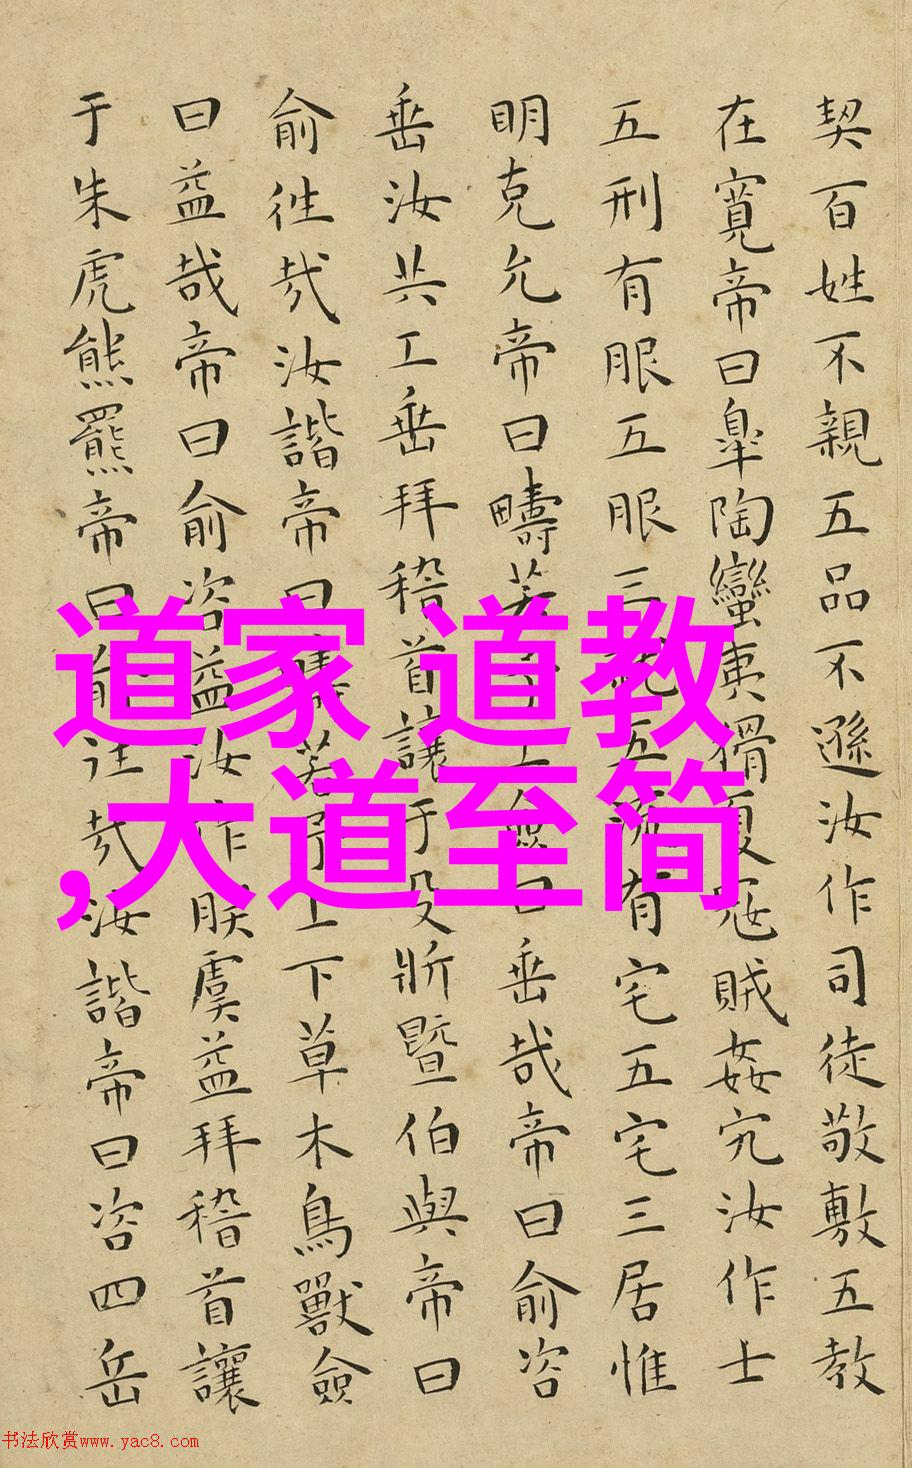 契百姓不親五品不遜汝作司徒敬敷五教
在寬帝曰臯陶蠻夷猾夏冦賊姦宄汝作士
五刑有服五服三就五流有宅五宅三居惟
明克允帝曰疇若予工僉曰垂哉帝曰俞咨
垂汝共工垂拜稽首讓于殳斨暨伯與帝曰
俞徃㢤汝諧帝曰疇若予上下草木鳥獸僉
曰益哉帝曰俞咨益汝作朕虞益拜稽首讓
于朱虎熊羆帝曰俞往㢤汝諧帝曰咨四岳
道家 道教
,大道至简
书法欣赏www.yac8.com